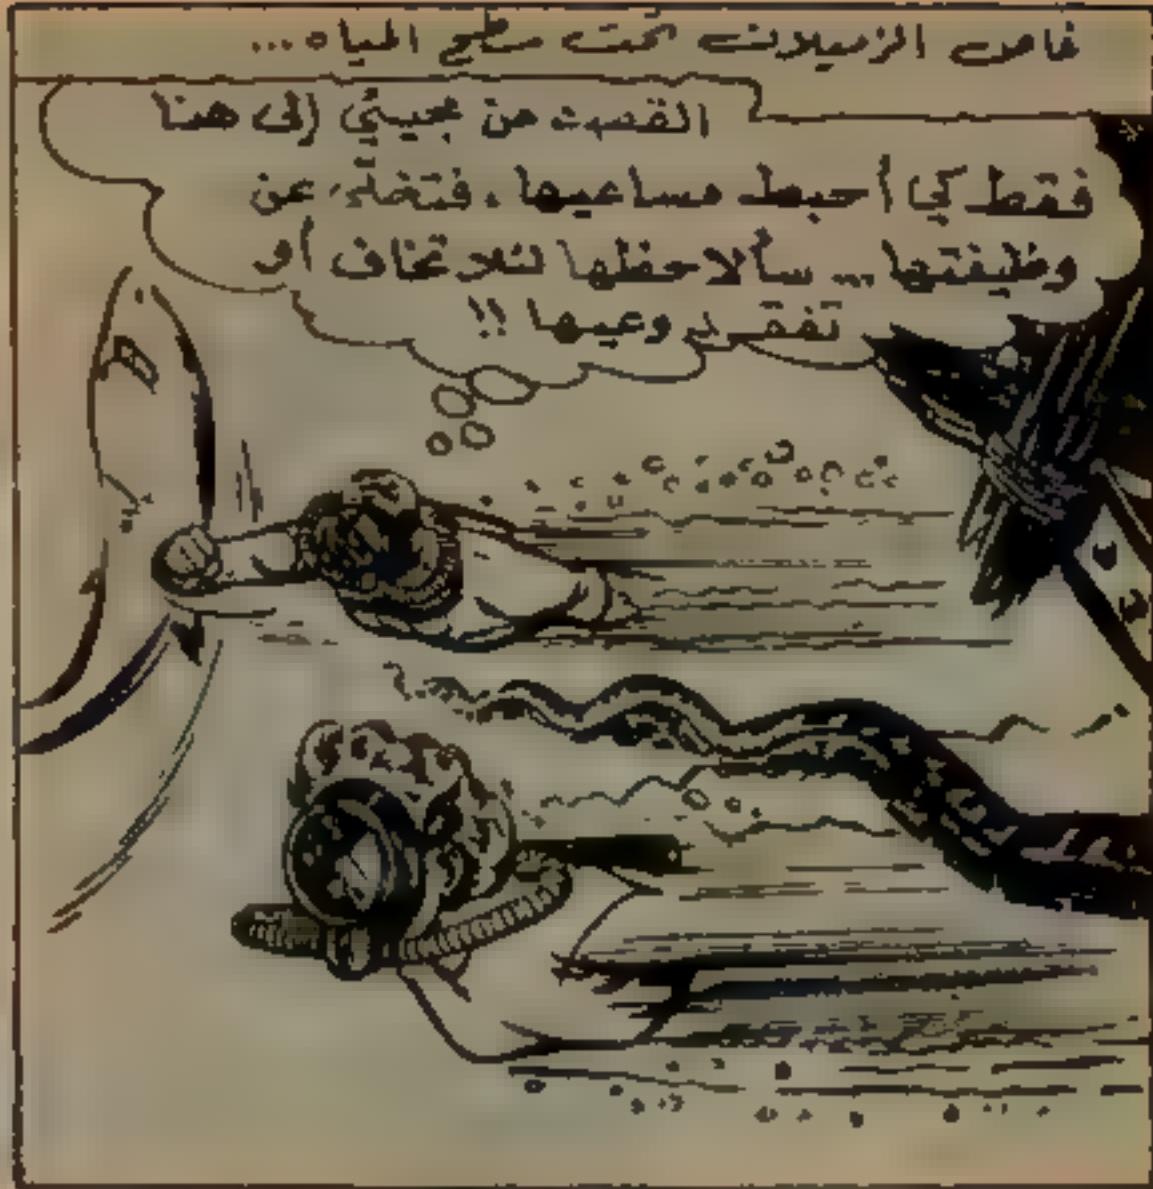 غاص الزميلان تحت سطح المياه...
القصد من مجيئي إلى هنا
فقط كي أحبط مساعيها، فتتخلّى عن
وظيفتها... سألاحظها لئلا تخاف أو
تفقد وعيها!!